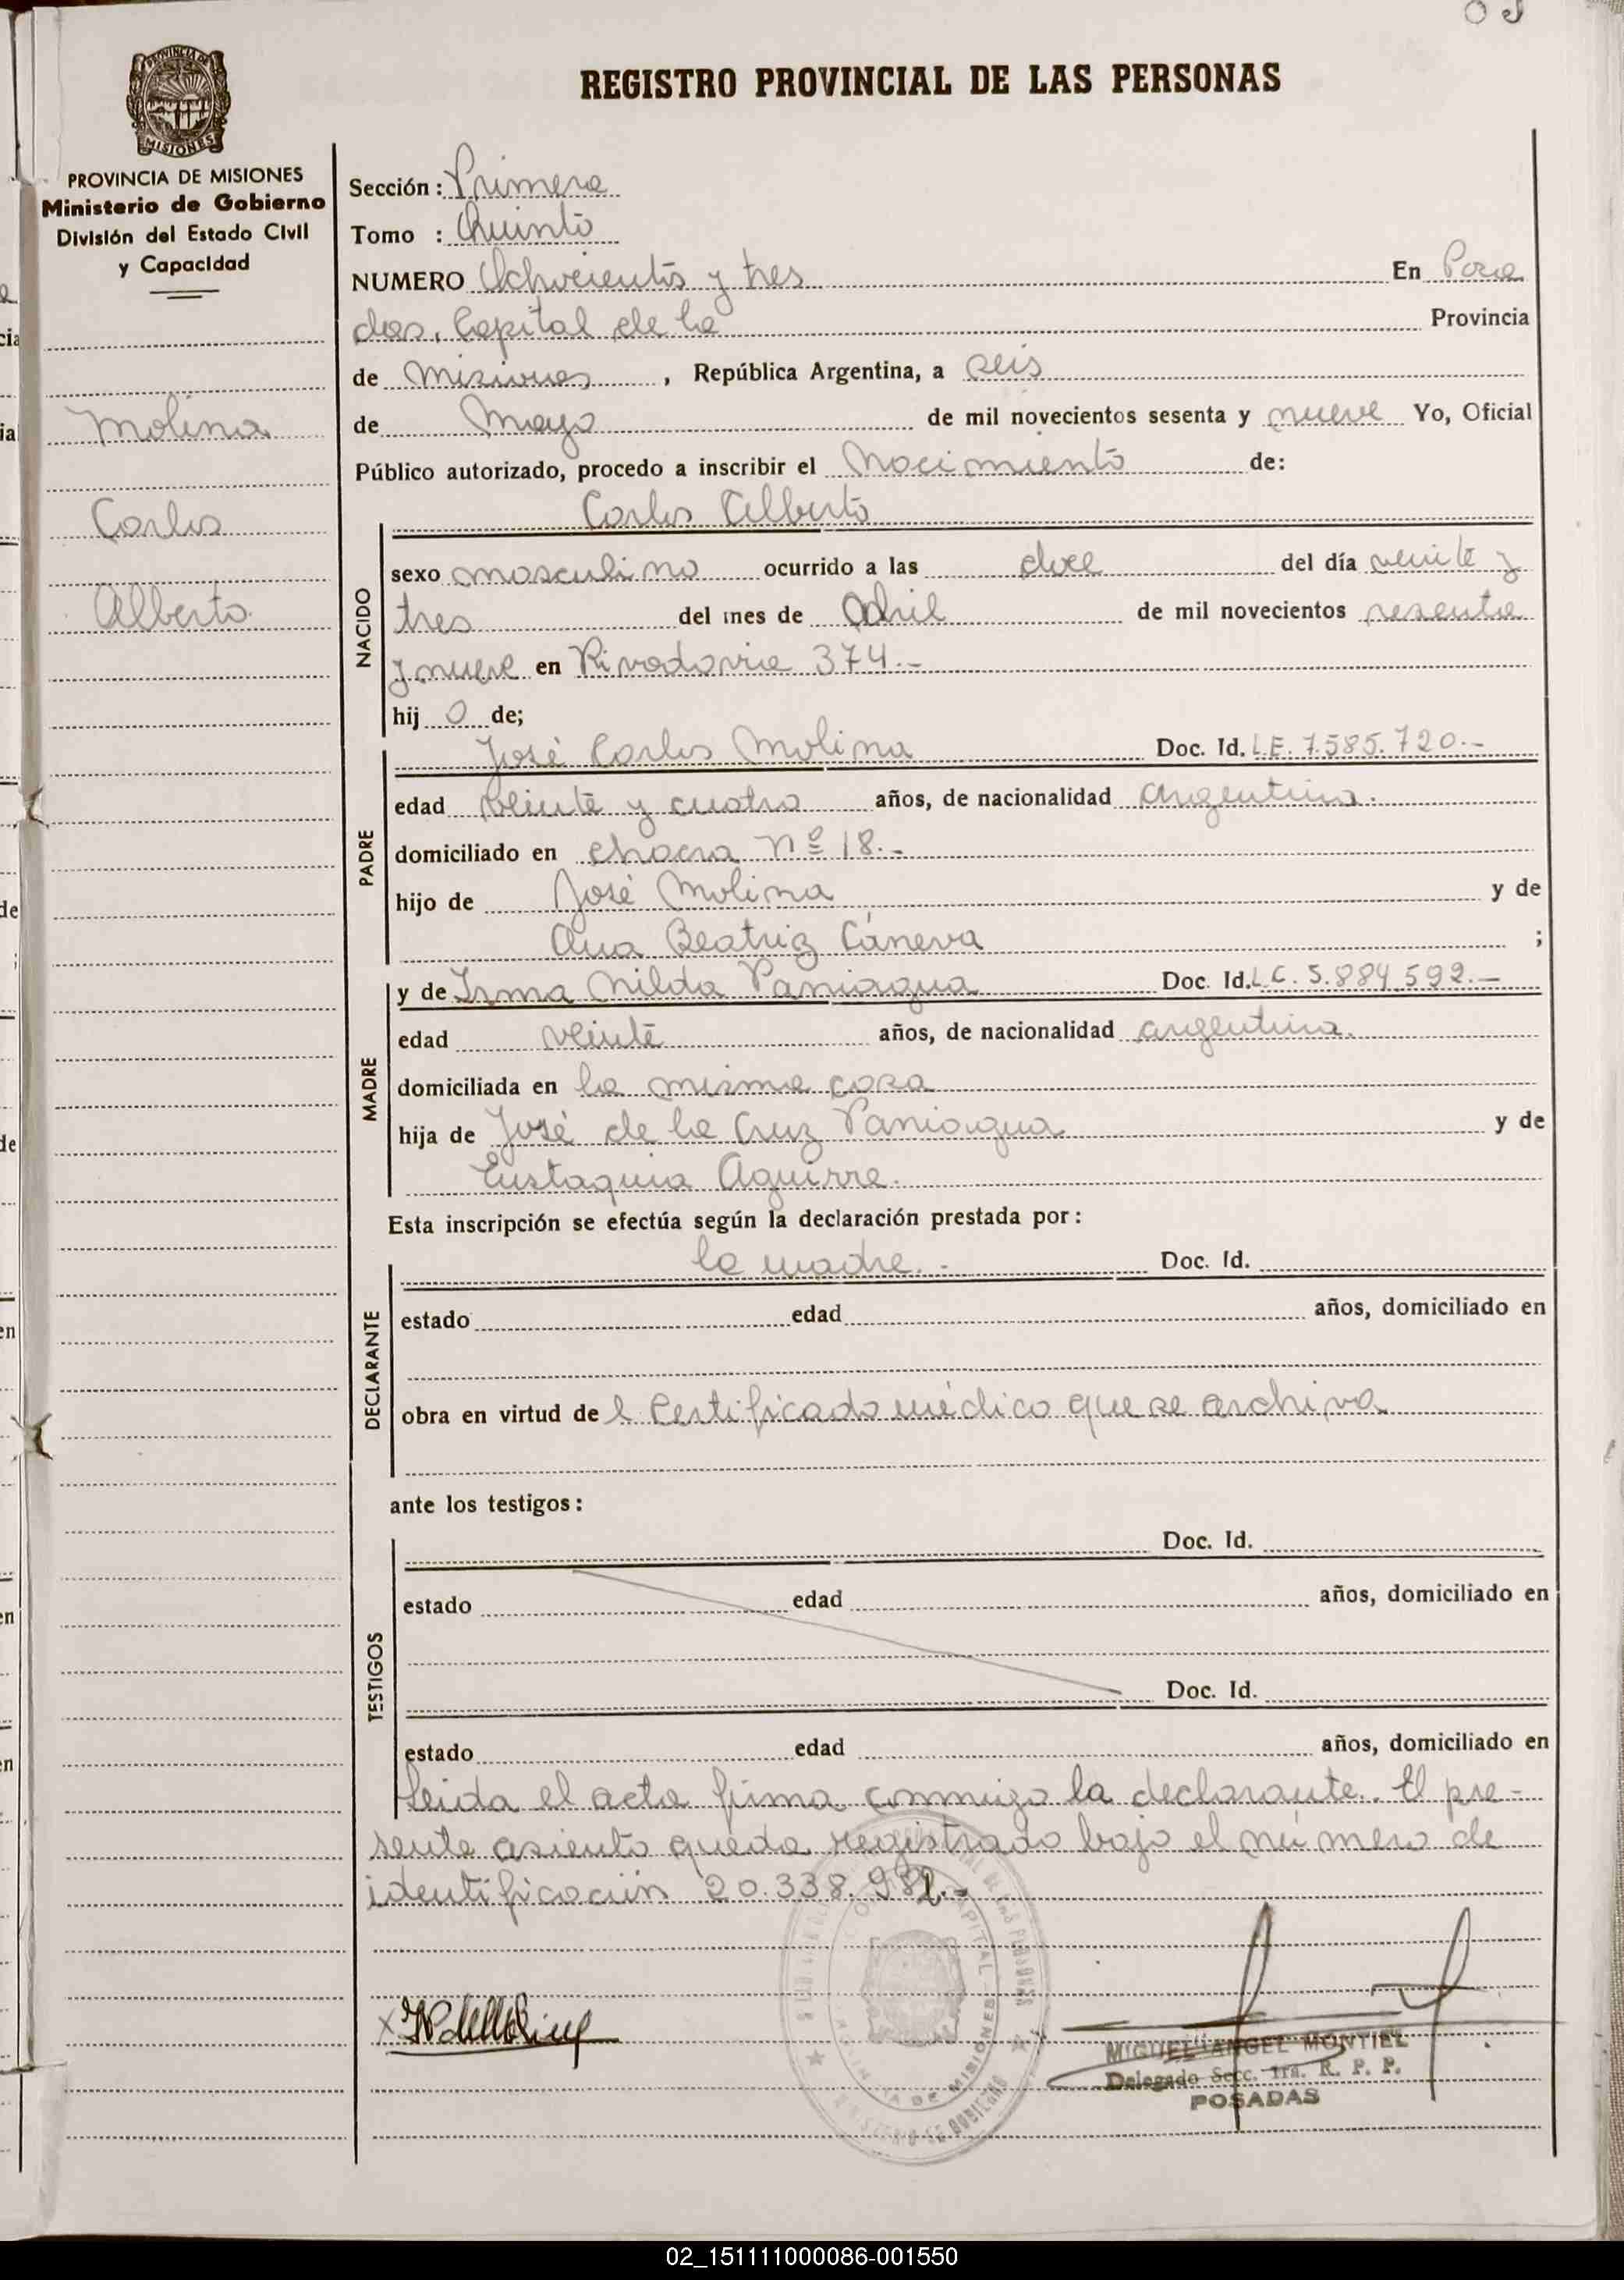 REGISTRO PROVINCIAL DE LAS PERSONAS
PROVINCIA DE MISIONES
Ministerio de Gobierno
División del Estado Civil
y Capacidad
Molina
Carlos
Alberto
Sección: Primera
Tomo : Quinto
NUMERO Ochocientos y tres En Posa
das, Capital de la Provincia
de Misiones, República Argentina, a seis
de Mayo de mil novecientos sesenta y nueve Yo, Oficial
Público autorizado, procedo a inscribir el Nacimiento de:
Carlos Alberto
NACIDO
sexo masculino ocurrido a las doce del día veinte y
tres del mes de Abril de mil novecientos sesenta
y nueve en Rivadavia 374.-
hij o de;
PADRE
José Carlos Molina Doc. Id. L.E. 7.585.720.-
edad veinte y cuatro años, de nacionalidad argentina.
domiciliado en chacra nº 18.-
hijo de José Molina y de
Ana Beatriz Cáneva ;
MADRE
y de Irma Nilda Paniagua Doc. Id. L.C. 5.884.592.-
edad veinte años, de nacionalidad argentina.
domiciliada en la misma casa
hija de José de la Cruz Paniagua y de
Eustaquia Aguirre.
Esta inscripción se efectúa según la declaración prestada por:
DECLARANTE
la madre.- Doc. Id.
estado edad años, domiciliado en
obra en virtud de l Certificado médico que se archiva
ante los testigos:
TESTIGOS
Doc. Id.
estado edad años, domiciliado en
Doc. Id.
estado edad años, domiciliado en
Leida el acta firma conmigo la declarante. El pre-
sente asiento queda registrado bajo el número de
identificación 20.338.982.-
MIGUEL ANGEL MONTIEL
Delegado Secc. 1ra. R. P. P.
POSADAS
02_151111000086-001550